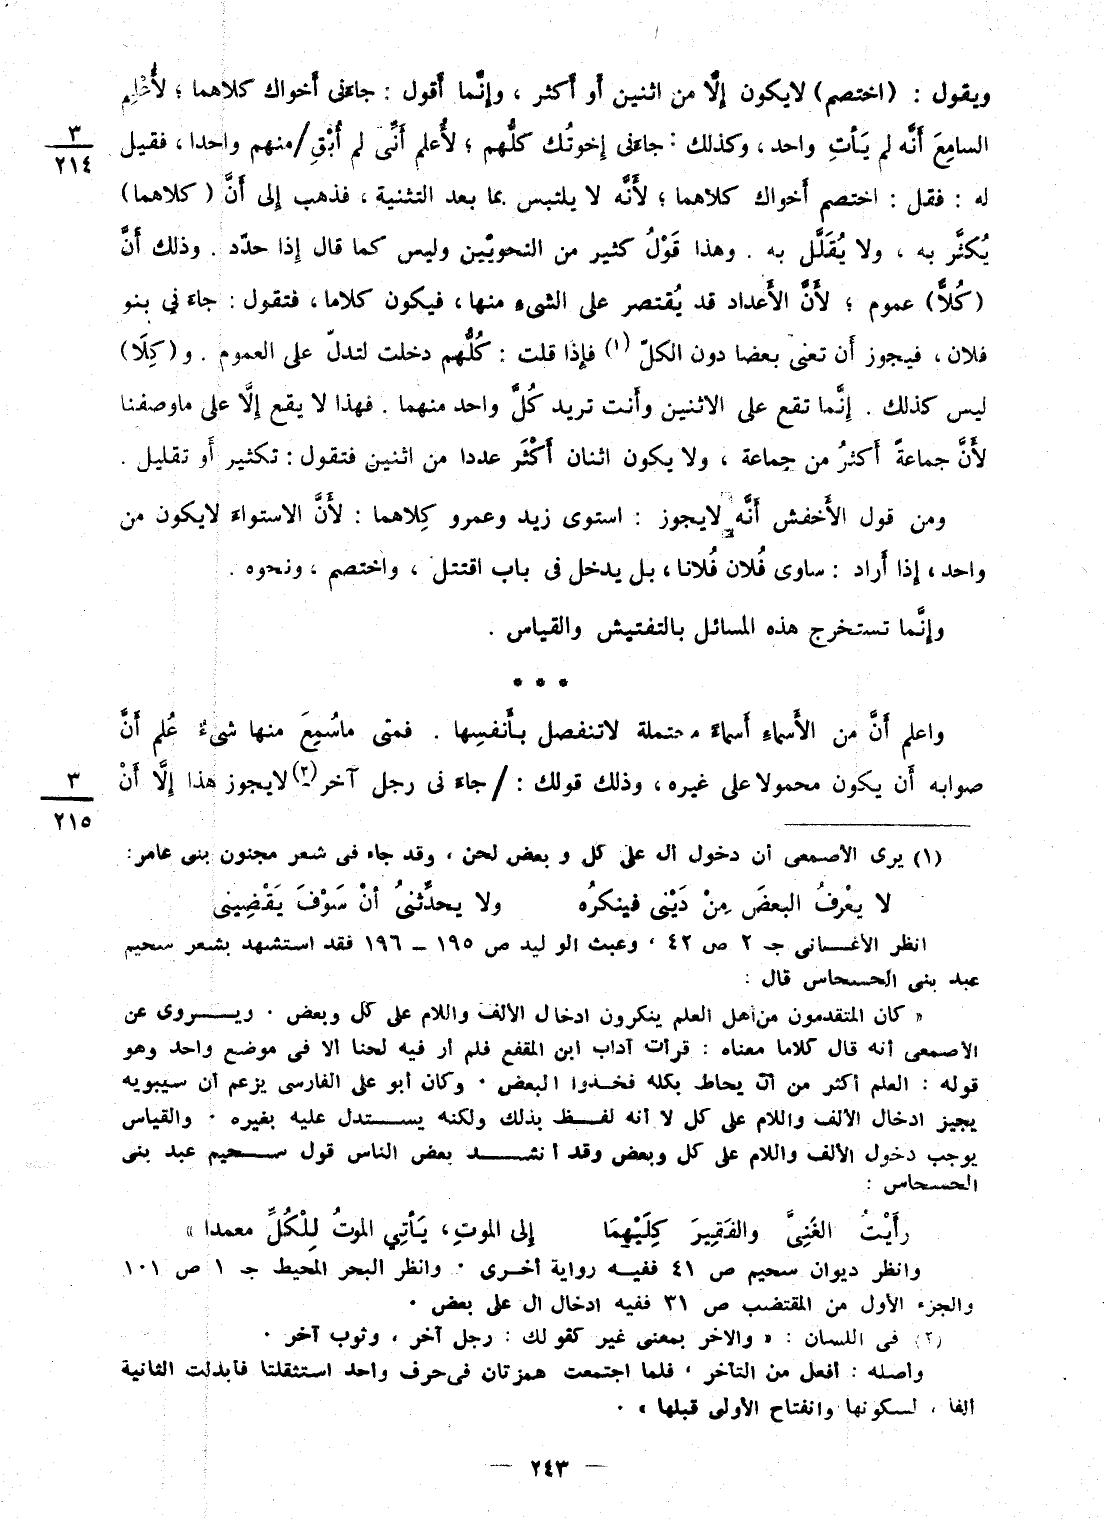 ويقول : (اختصم) لايكون إلَّا من اثنين أو أكثر ، وإنَّما أقول : جاءَنى أخواك كلاهما ؛ لأُعْلِم
السامِعَ أنَّه لم يَأتِ واحد ، وكذلك : جاءَنى إخوتُك كلُّهم ؛ لأُعلم أنِّى لم أُبْقِ/منهم واحدا ، فقيل
٣
٢١٤
له : فقل : اختصم أخواك كلاهما ؛ لأَنَّه لا يلتبس بما بعد التثنية ، فذهب إلى أنَّ (كلاهما)
يُكثَّر به ، ولا يُقَلَّل به . وهذا قَوْلُ كثير من النحويِّين وليس كما قال إذا حدّد . وذلك أنَّ
(كُلاًّ) عموم ؛ لأَنَّ الأَعداد قد يُقتصر على الشىء منها ، فيكون كلاما ، فتقول : جاءَ نى بنو
فلان ، فيجوز أن تعنى بعضا دون الكلّ (١) فإذا قلت : كُلُّهم دخلت لتدلّ على العموم . و (كِلَا)
ليس كذلك . إنَّما تقع على الاثنين وأنت تريد كُلَّ واحد منهما . فهذا لا يقع إلَّا على ماوصفنا
لأَنَّ جماعةً أكثرُ من جماعة ، ولا يكون اثنان أكْثَر عددا من اثنين فتقول : تكثير أو تقليل .
ومن قول الأَخفش أنَّه لايجوز : استوى زيد وعمرو كِلاهما : لأَنَّ الاستواءَ لايكون من
واحد ، إذا أراد : ساوى فُلان فُلانا ، بل يدخل فى باب اقتتل ، واختصم ، ونحوه .
وإنَّما تستخرج هذه المسائل بالتفتيش والقياس .
* * *
واعلم أنَّ من الأَسماءِ أسماءً محتملة لاتنفصل بأنفسِها . فمتى ماسُمِعَ منها شىءٌ عُلم أنَّ
صوابه أن يكون محمولا على غيره ، وذلك قولك : / جاءَ نى رجل آخر (٢) لايجوز هذا إلَّا أنْ
٣
٢١٥
(١) يرى الأصمعى أن دخول أل على كل و بعض لحن ، وقد جاء فى شعر مجنون بنى عامر :
لا يعْرفُ البعضَ مِنْ دَيْنى فينكرُه ولا يحدِّثنىُ أنْ سَوْفَ يَقْضِينى
انظر الأغـانى جـ ٢ ص ٤٢ ، وعبث الوليد ص ١٩٥ – ١٩٦ فقد استشهد بشعر سحيم
عبد بنى الحسحاس قال :
« كان المتقدمون من أهل العلم ينكرون ادخال الألف واللام على كل وبعض ٠ ويـروى عن
الأصمعى أنه قال كلاما معناه : قرأت آداب ابن المقفع فلم أر فيه لحنا ألا فى موضع واحد وهو
قوله : العلم أكثر من أن يحاط بكله فخذوا البعض ٠ وكان أبو على الفارسى يزعم أن سيبويه
يجيز ادخال الألف واللام على كل لا أنه لفـظ بذلك ولكنه يستدل عليه بغيره ٠ والقياس
يوجب دخول الألف واللام على كل وبعض وقد أنشـد بعض الناس قول سـحيم عبد بنى
الحسحاس :
رأيْتُ الغَنِىَّ والفَقِيرَ كِلَيْهِمَا إلى الموتِ ، يَأتِي الموتُ لِلْكُلِّ معمدا »
وانظر ديوان سحيم ص ٤١ ففيـه رواية أخـرى ٠ وانظر البحر المحيط جـ ١ ص ١٠١
والجزء الأول من المقتضب ص ٣١ ففيه ادخال ال على بعض ٠
(٢) فى اللسان : « والآخر بمعنى غير كقولك : رجل آخر ، وثوب آخر ٠
وأصله : أفعل من التأخر ، فلما اجتمعت همزتان فى حرف واحد استثقلتا فأبدلت الثانية
ألفا ، لسكونها وانفتاح الأولى قبلها » ٠
— ٢٤٣ —